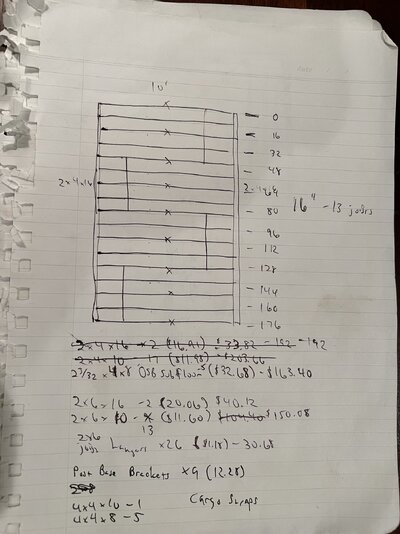 10'
0
16
32
48
2x4x16
64
80
16" - 13 joists
96
112
128
144
160
176
2x4x16 x2 ($16.91) $33.82 - 192 - 192
2x4x10 - 17 ($11.98) - $203.66
23/32 4x8 OSB subfloor - 5 ($32.68) - $163.40
2x6x16 - 2 (20.06) $40.12
2x6x10 - ($11.60) $104.40 $150.08
13
2x6
joist hangers x26 ($1.18) - 30.68
Post Base Brackets x9 (12.28)
4x4x10 - 1
Cargo Straps
4x4x8 - 5